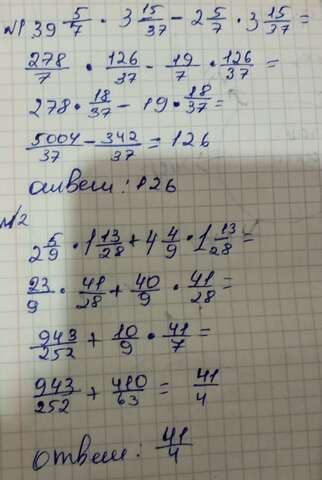 №1. 39 5/7 · 3 15/37 - 2 5/7 · 3 15/37 =
278/7 · 126/37 - 19/7 · 126/37 =
278 · 18/37 - 19 · 18/37 =
5004/37 - 342/37 = 126
ответ: 126
№2
2 5/9 · 1 13/28 + 4 4/9 · 1 13/28 =
23/9 · 41/28 + 40/9 · 41/28 =
943/252 + 10/9 · 41/7 =
943/252 + 410/63 = 41/4
ответ: 41/4